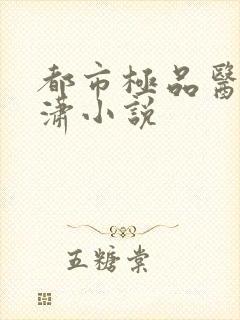 都市極品醫
瀟小說
五糖棠